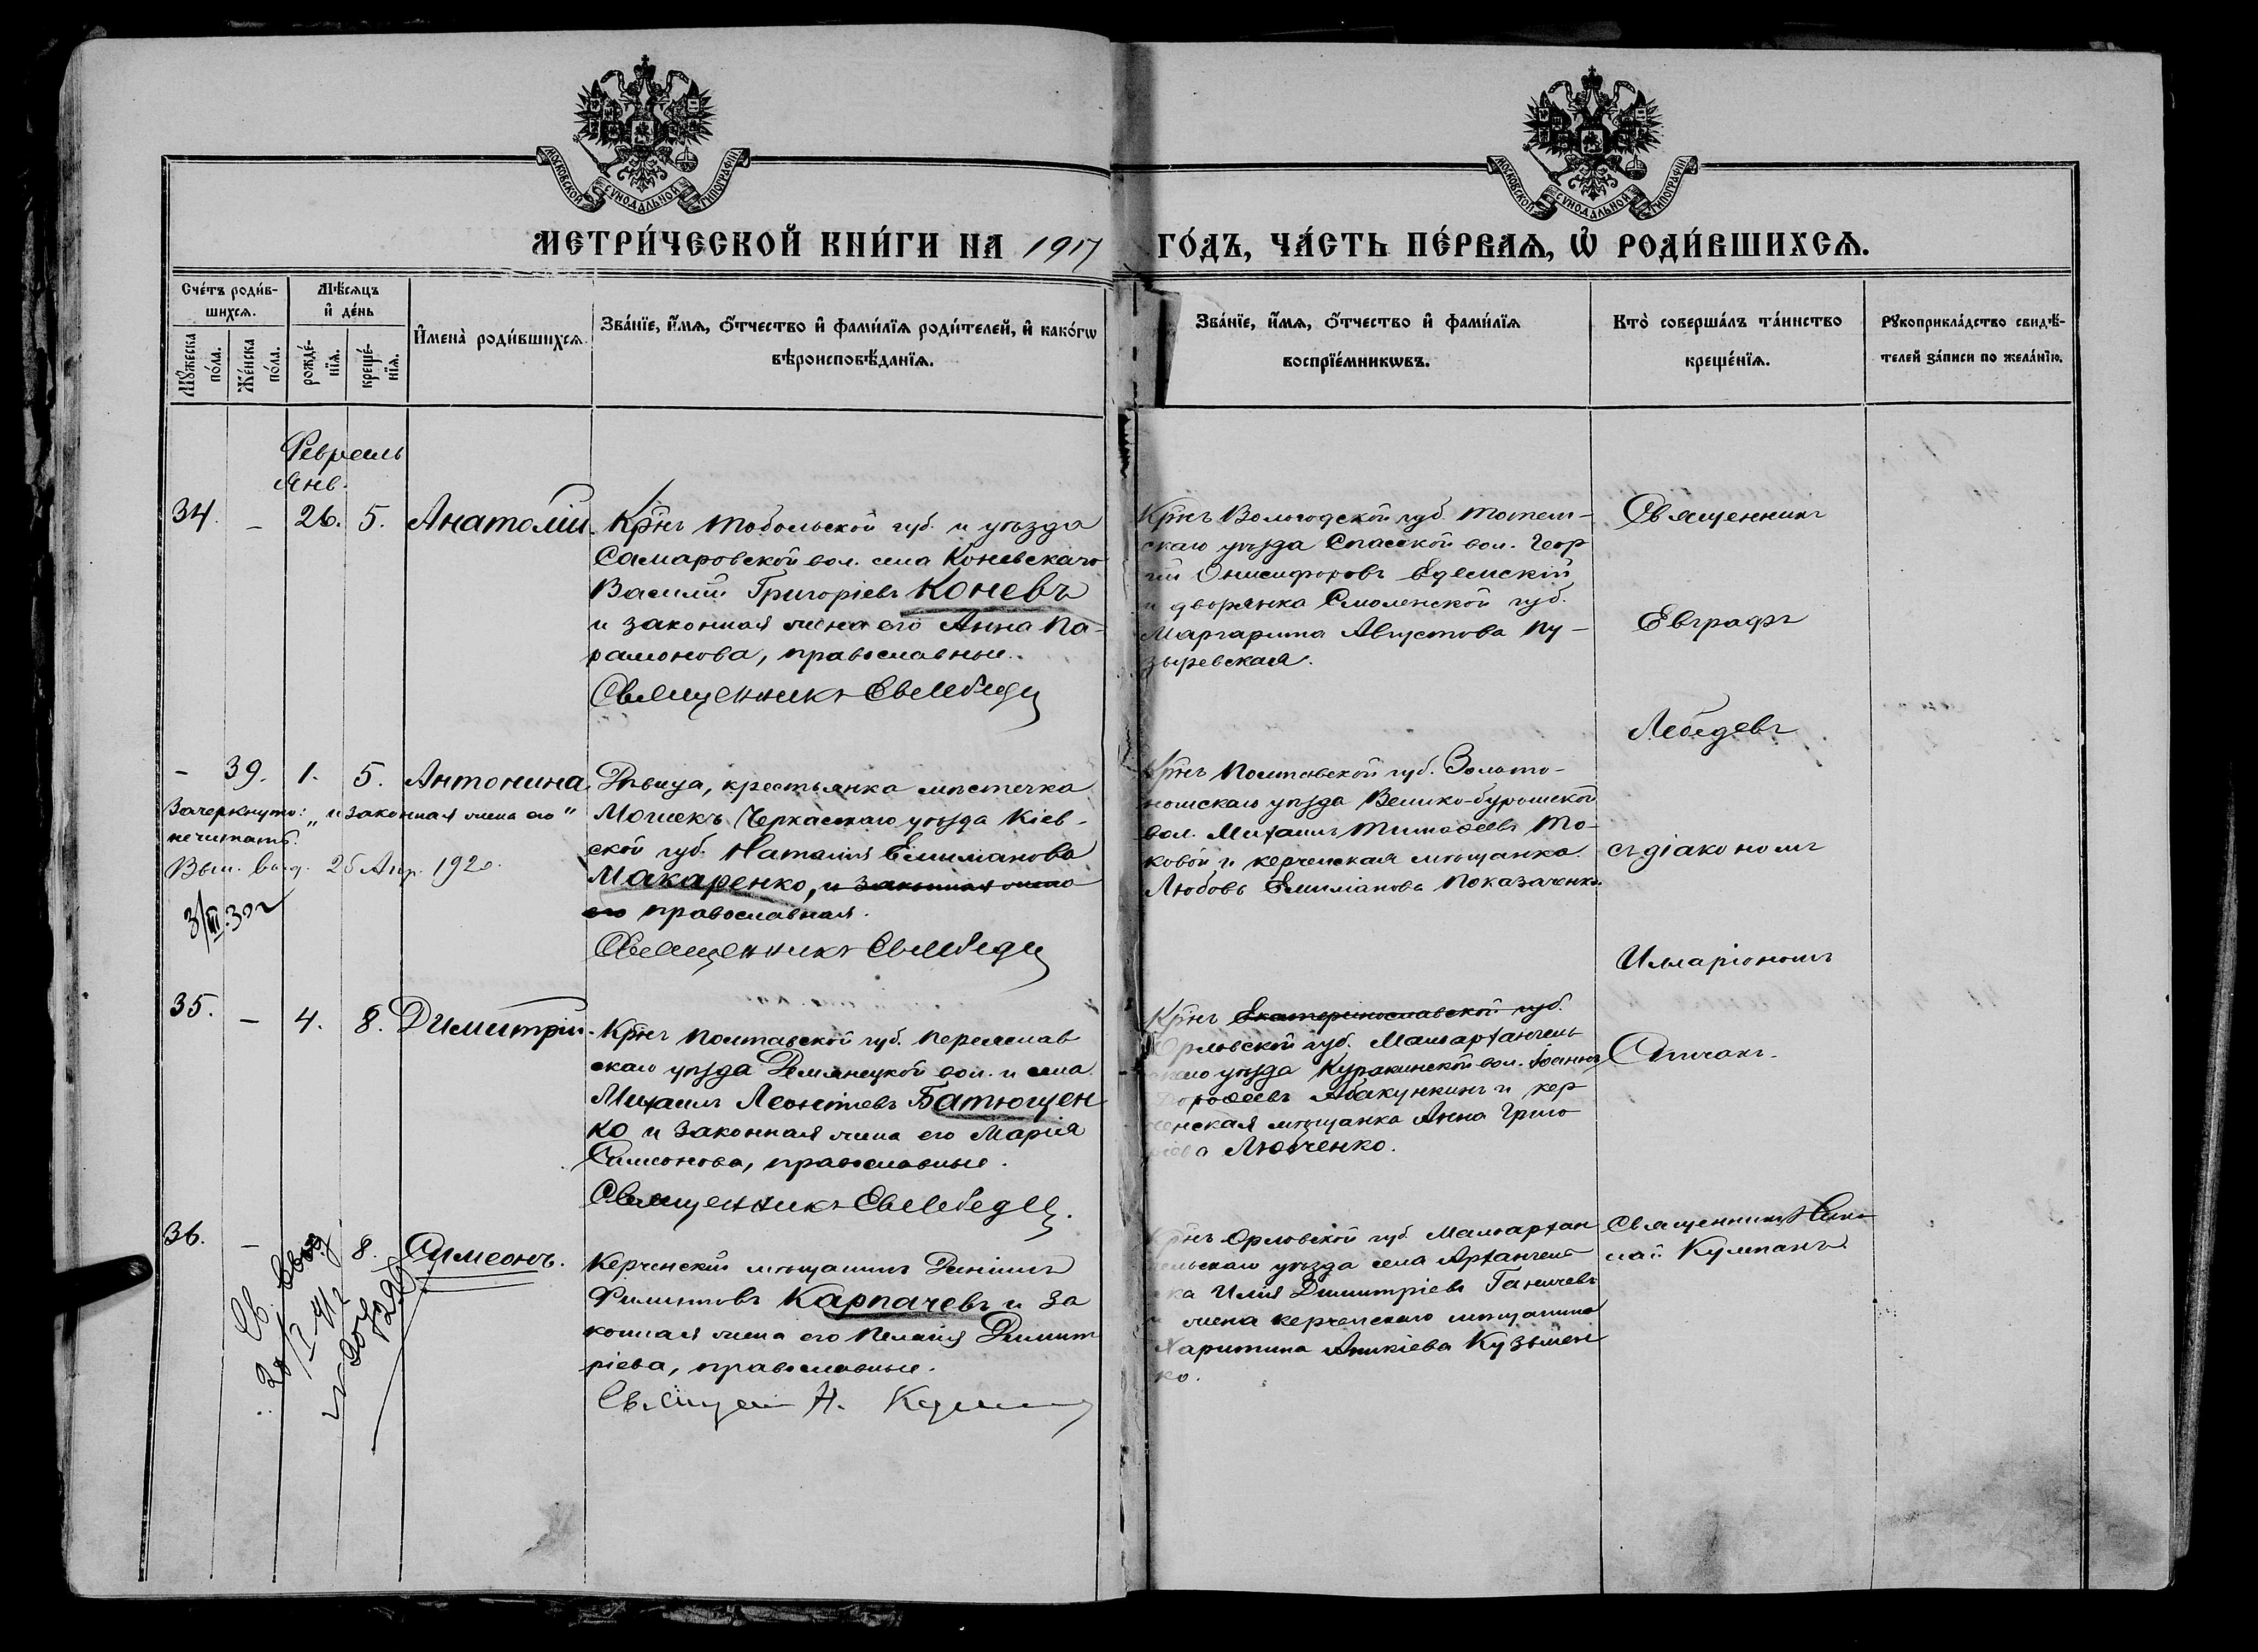 МОСКОВСКОЙ СѴНОДАЛЬНОЙ ТИПОГРАФІИ
МОСКОВСКОЙ СѴНОДАЛЬНОЙ ТИПОГРАФІИ
МЕТРИ́ЧЕСКОЙ КНИ́ГИ НА 1917
ГО́ДЪ, ЧА́СТЬ ПЕ́РВАѦ, Ѽ РОДИ́ВШИХСѦ.
Сче́тъ роди́в-
шихсѧ.
Мꙋ́жеска
по́ла.
Же́нска
по́ла.
Мѣ́сѧцъ
и҆ де́нь
рожде́-
нїѧ.
креще́-
нїѧ.
И҆мена̀ роди́вшихсѧ.
Зва́нїе, и҆́мѧ, ѻ҆́тчество и҆ фами́лїѧ роди́телей, и҆ како́гѡ
вѣроисповѣ́данїѧ.
Зва́нїе, и҆́мѧ, ѻ҆́тчество и҆ фами́лїѧ
воспрїе́мникѡвъ.
Кто̀ соверша́лъ та́инство
креще́нїѧ.
Рꙋкоприкла́дство свидѣ́-
телей за́писи по жела́нїю.
Февраль
Янв.
34. – 26. 5. Анатолій.
Кр̃нъ Тобольской губ. и уѣзда
Самаровской вол. села Коневскаго
Василій Григоріевъ Коневъ
и законная жена его Анна Па-
рамонова, православные.
Священникъ Ев Лебедевъ
Кр̃нъ Вологодской губ. Тотем-
скаго уѣзда Спасской вол. Геор
гій Онисифоровъ Едемскій
и дворянка Смоленской губ.
Маргарита Августова Пу-
зыревская.
Священникъ
Евграфъ
Лебедевъ
– 39. 1. 5. Антонина
Зачеркнуто: „и законная жена его"
не читать.
Вып. выд. 25 Апр. 1920.
3/III.30 г
Дѣвица, крестьянка мѣстечка
Мошекъ Черкасскаго уѣзда Кіев-
ской губ. Наталія Емиліанова
Макаренко, и законная жена
его православная.
Священникъ Ев Лебедевъ
Кр̃нъ Полтавской губ. Золото-
ношскаго уѣзда Велико-буромской
вол. Михаилъ Тимоѳеевъ То-
ковой и керченская мѣщанка
Любовь Емиліанова Показаченко.
съ діакономъ
Илларіономъ
35. – 4. 8. Димитрій.
Кр̃нъ Полтавской губ. Переяслав
скаго уѣзда Демянецкой вол. и села
Михаилъ Леонтіевъ Батющен
ко и законная жена его Марія
Симеонова, православные.
Священникъ Ев Лебедевъ.
Кр̃нъ Екатеринославской губ.
Орловской губ. Малоархангель
скаго уѣзда Куракинской вол. Іоаннъ
Дороѳеевъ Абакункинъ и кер
ченская мѣщанка Анна Григо
ріева Любченко.
Спичакъ.
36. – 8. Симеонъ.
Керченскій мѣщанинъ Даніилъ
Филиповъ Карпачевъ и за
конная жена его Пелагія Димит
ріева, православные.
Священ Н. Кулпанъ
Кр̃нъ Орловской губ. Малоархан
гельскаго уѣзда села Архангель
ска Илія Димитріевъ Ганичевъ
и жена керченскаго мѣщанина
Харитина Аникіева Кузьмен
ко.
Священникъ Нико
лай Кулпанъ.